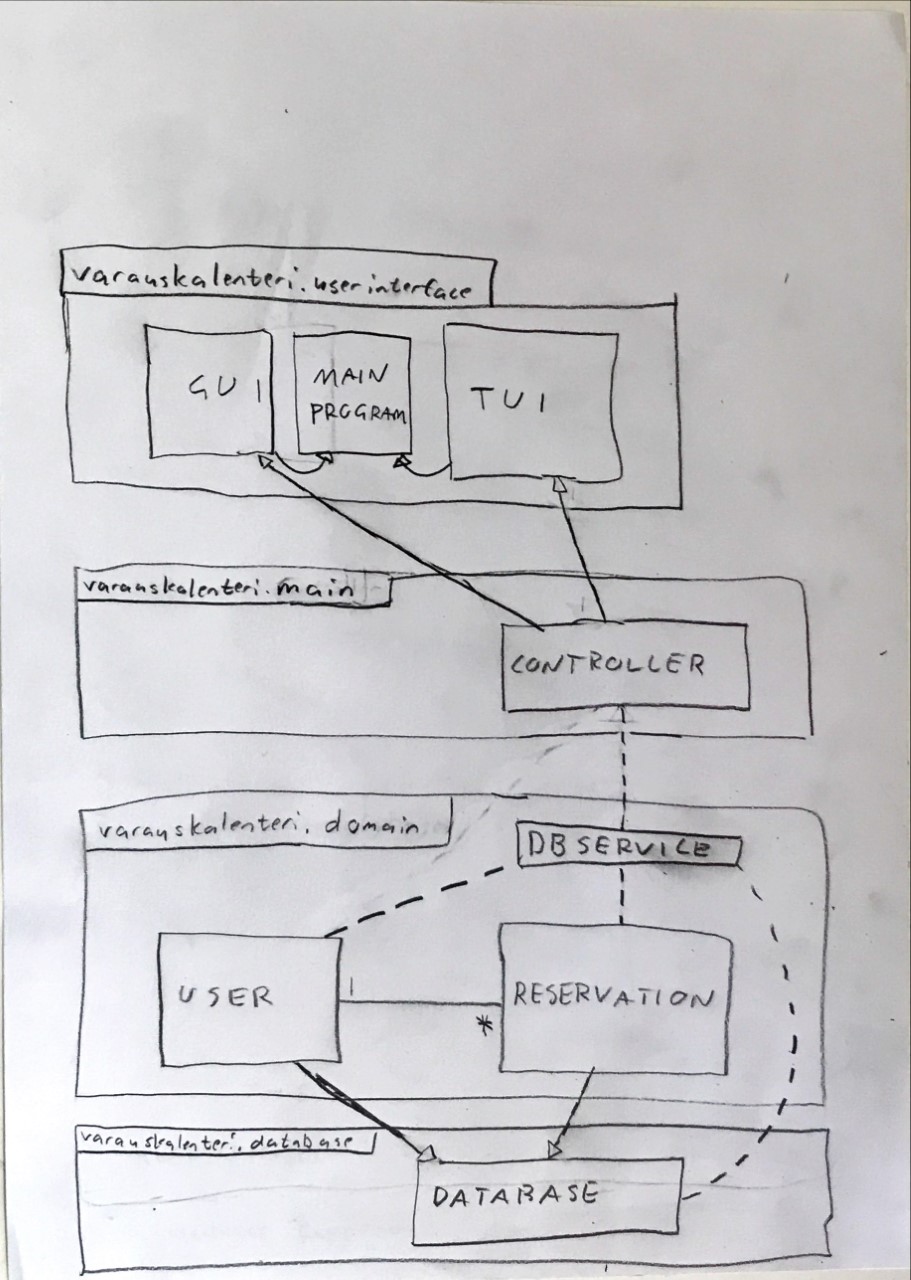 varauskalenteri.userinterface
GUI
MAIN
PROGRAM
TUI
varauskalenteri.main
CONTROLLER
varauskalenteri.domain
DBSERVICE
USER
1
*
RESERVATION
varauskalenteri.database
DATABASE